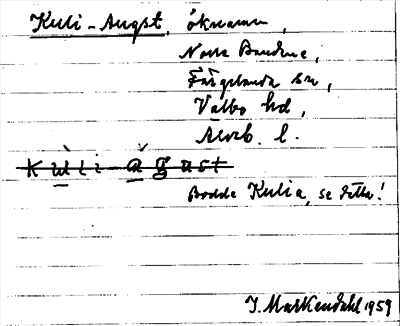 Kuli-August, öknamn,
Norra Bondene,
Färgelanda sn,
Valbo hd,
Älvsb. l.
Kuli-Agust
Bodde Kulia, se detta!
I. Markendahl 1959